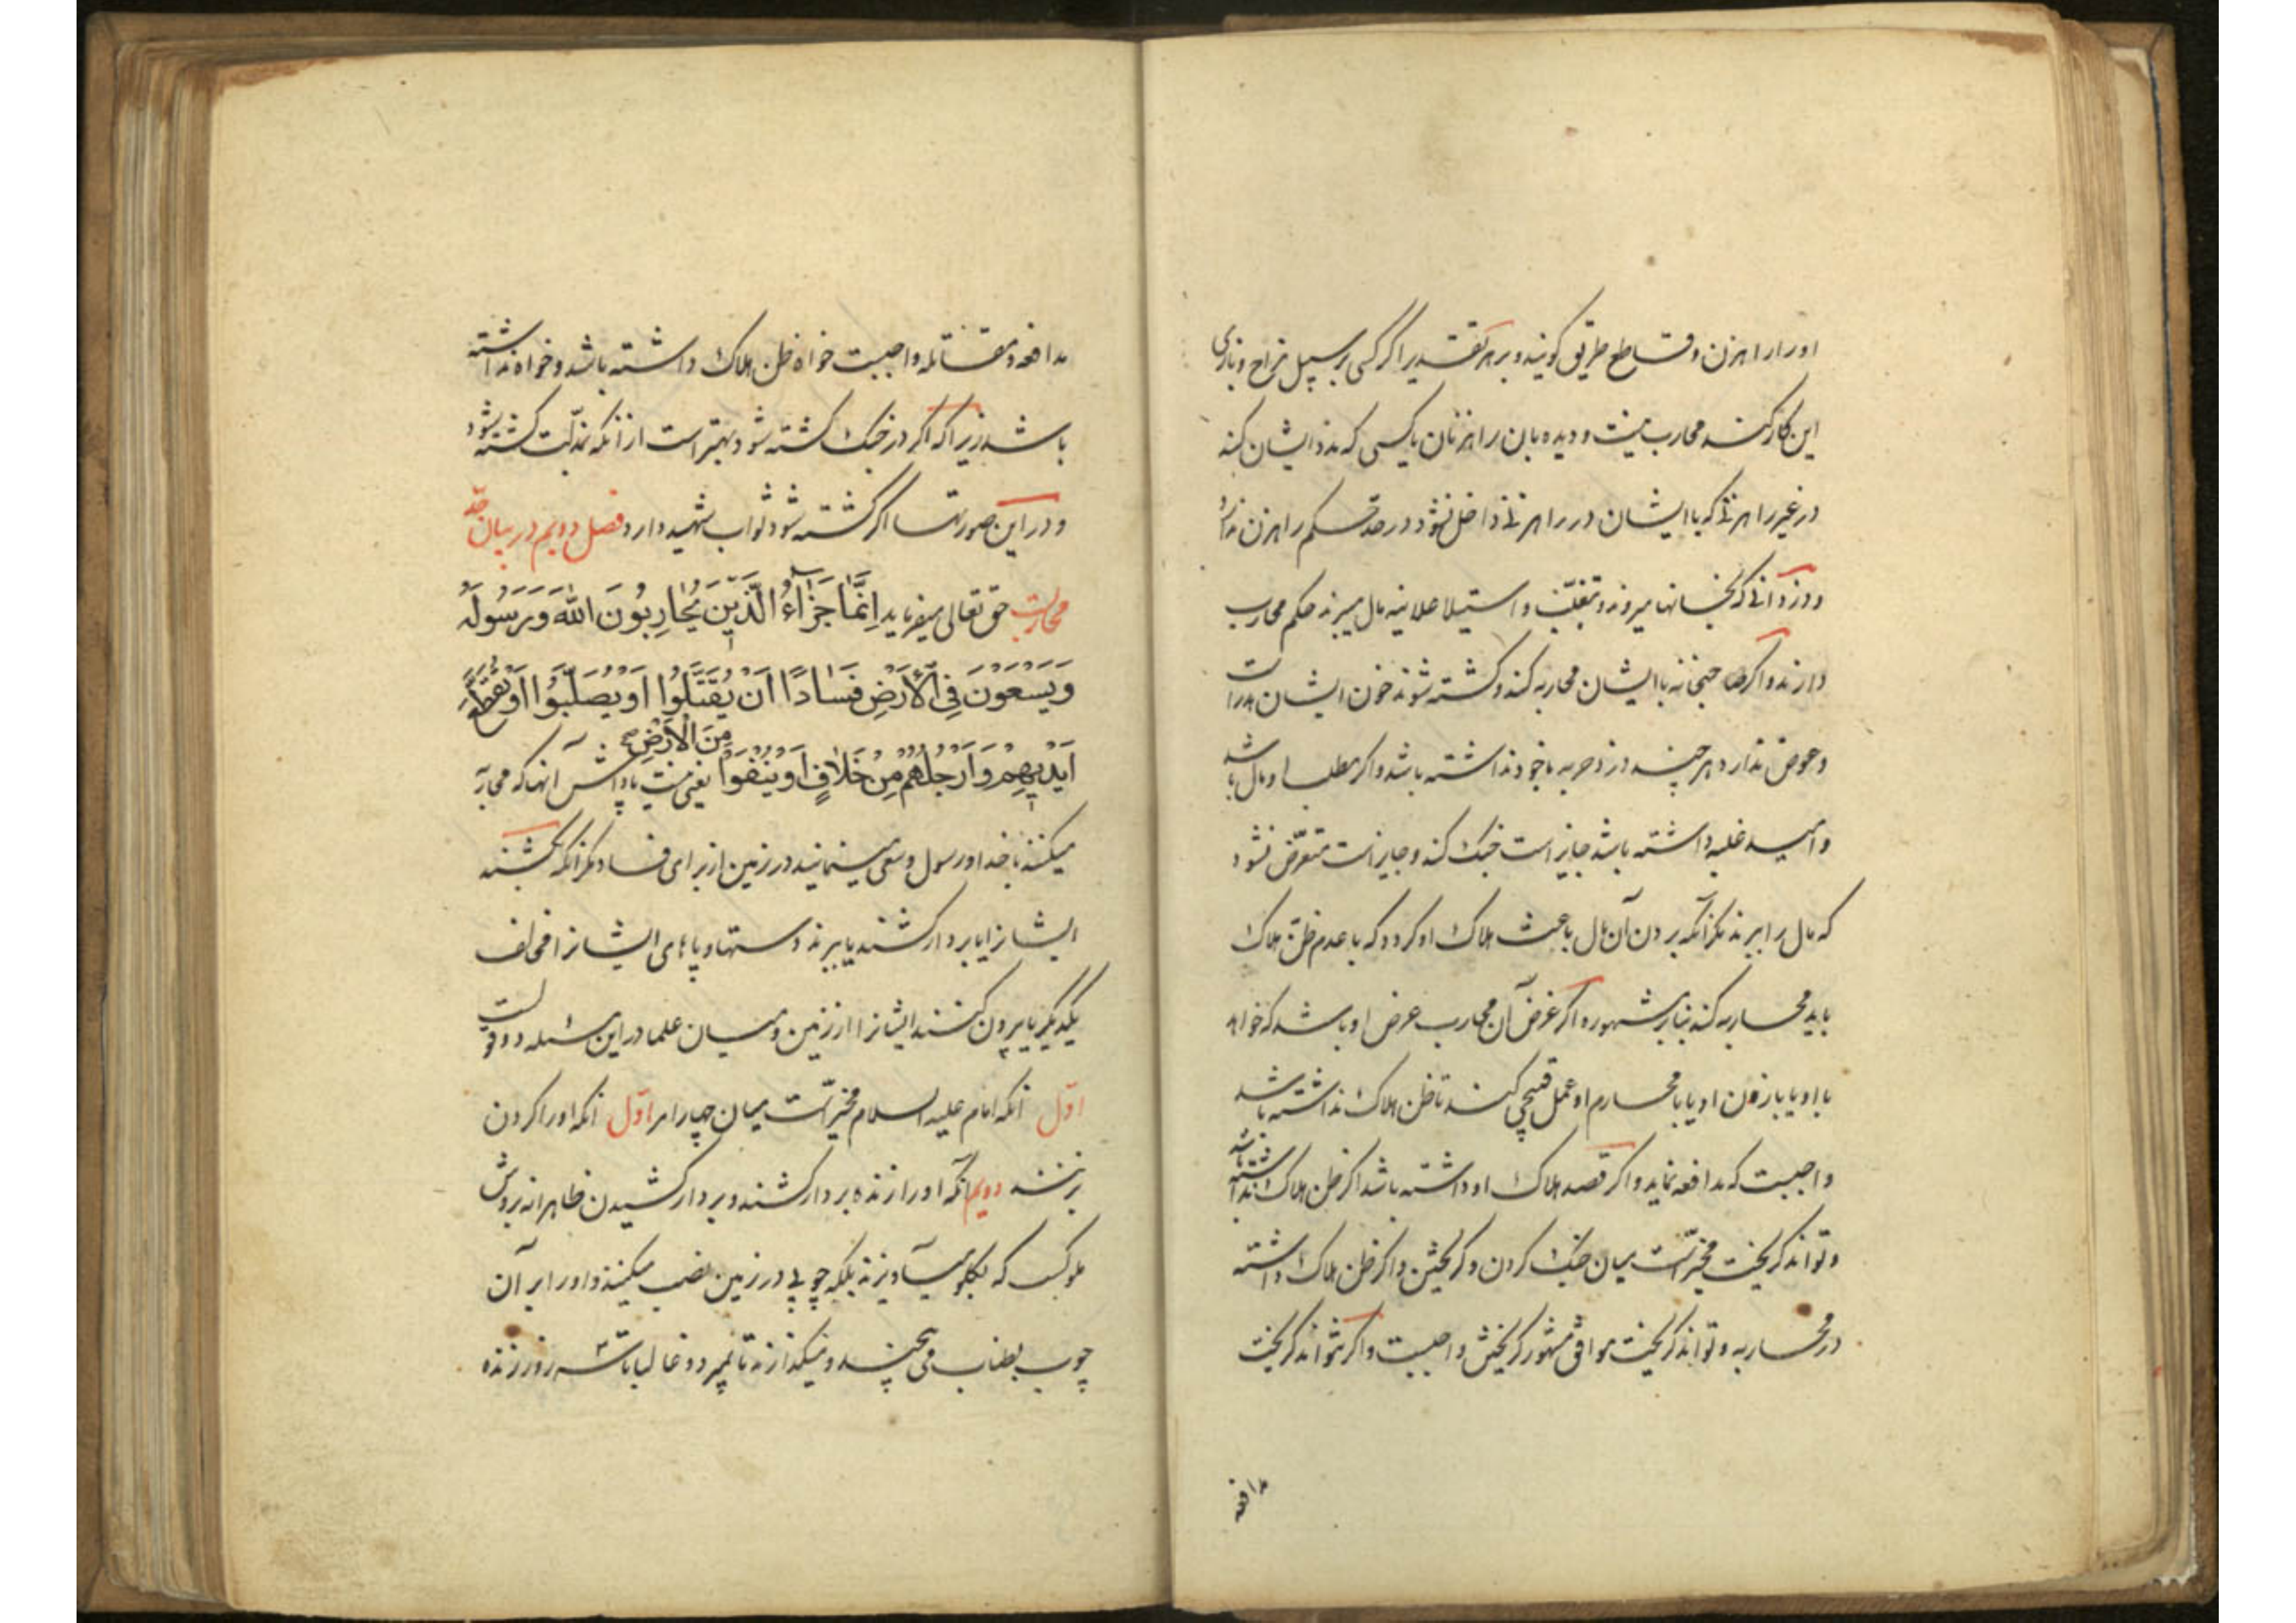 او را راهزن و قاطع طریق کویند و بر هر تقدیر اکر کسی بر سبیل مزاح و بازی
این کار کند محارب نیست و دیده بان راهزنان یا کسی که مدد ایشان کند
در غیر راهزنی که با ایشان در راهزنی داخل نشود در حد حکم راهزن ندارد
و دزدانی که بخانها میروند و بتغلب و استیلا علانیه مال میبرند حکم محارب
دارند و اکر صاحبخانه با ایشان محاربه کند و کشته شوند خون ایشان هدر است
و عوض ندارد هر چند دزد حربه با خود نداشته باشد و اکر مطلب او مال باشد
و امید غلبه داشته باشد جایز است جنک کند و جایز است متعرض نشود
که مال را ببرند مکر آنکه بردن آن مال باعث هلاک او کردد که با عدم ظن هلاک
باید محاربه کند بنابر مشهور و اکر غرض آن محارب عرض او باشد که خواهد
با او یا با زن او یا با محارم او عمل قبیحی کند تا ظن هلاک نداشته باشد
واجبست که مدافعه نماید و اکر قصد هلاک او داشته باشد اکر ظن هلاک نداشته باشد
و تواند کریخت مخیر است میان جنک کردن و کریختن و اکر ظن هلاک داشته
در محاربه و تواند کریخت موافق مشهور کریختن واجبست و اکر نتواند کریخت
مدافعه
مدافعه و مقاتله واجبست خواه ظن هلاک داشته باشد و خواه نداشته
باشد زیرا که اکر در جنک کشته شود بهتر است از انکه بذلت کشته شود
و در این صورتها اکر کشته شود ثواب شهید دارد فصل دویم در بیان حد
محاربست حق تعالی میفرماید اِنَّمَا جَزَاءُ الَّذِينَ يُحَارِبُونَ اللهَ وَرَسُولَهُ
وَيَسْعَوْنَ فِي الْاَرْضِ فَسَادًا اَنْ يُقَتَّلُوا اَوْ يُصَلَّبُوا اَوْ تُقَطَّعَ
اَيْدِيهِمْ وَاَرْجُلُهُمْ مِنْ خِلَافٍ اَوْ يُنْفَوْا مِنَ الْاَرْضِ یعنی نیست پاداش آنها که محاربه
میکنند با خدا و رسول و سعی مینمایند در زمین از برای فساد مکر آنکه بکشند
ایشانرا یا بر دار کشند یا ببرند دستها و پاهای ایشانرا مخالف
یکدیکر یا بیرون کنند ایشانرا از زمین و میان علما در این مسئله دو قولست
اول آنکه امام علیه السلام مخیر است میان چهار امر اول انکه او را کردن
بزنند دویم آنکه او را زنده بر دار کشند و بر دار کشیدن ظاهرا نه بروش
ملوکست که بکلو میآویزند بلکه چوبی در زمین نصب میکنند و او را بر آن
چوب بطناب می پیچند و میکذارند تا بمیرد و غالبا تا سه روز زنده